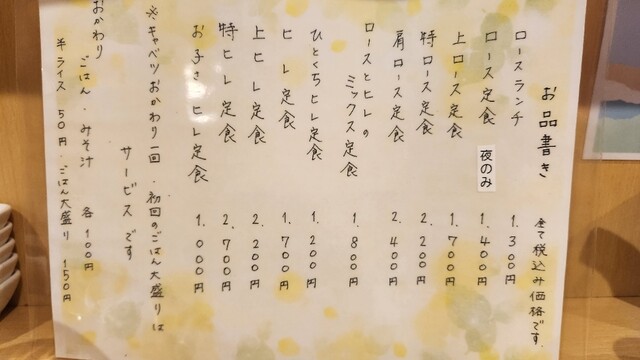 お品書き
全て税込み価格です。
ロースランチ 1.300円
ロース定食 夜のみ 1.400円
上ロース定食 1.700円
特ロース定食 2.200円
肩ロース定食 2.400円
ロースとヒレの
ミックス定食 1.800円
ひとくちヒレ定食 1.200円
ヒレ定食 1.700円
上ヒレ定食 2.200円
特ヒレ定食 2.700円
お子さまヒレ定食 1.000円
※キャベツおかわり一回・初回のごはん大盛りは
サービスです
おかわり
ごはん・みそ汁 各100円
半ライス 50円・ごはん大盛り 150円